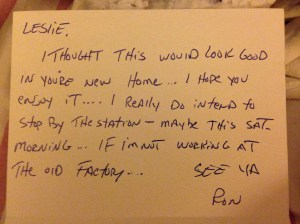 LESLIE.
I THOUGHT THIS WOULD LOOK GOOD
IN YOU'RE NEW HOME... I HOPE YOU
ENJOY IT.... I REALLY DO INTEND TO
STOP BY THE STATION - MAYBE THIS SAT-
MORNING... IF I'M NOT WORKING AT
THE OLD FACTORY...
SEE YA
RON